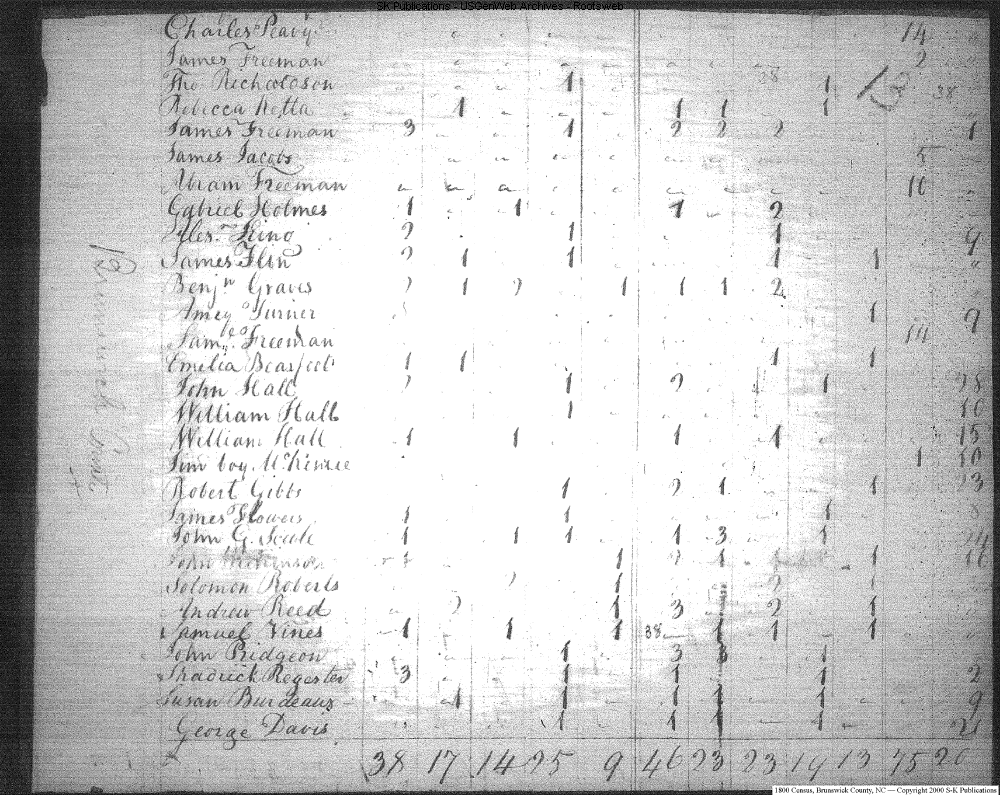 SK Publications - USGenWeb Archives - Rootsweb
Charles Peavy 14
James Freeman 2
Tho Richardson 1 1
Rebecca 1 1 1 1
James Freeman 3 1 2 2 2 1
James Jacobs 5
Abram Freeman 10
Gabriel Holmes 1 1 1 2
King 2 1 1 9
James Flin 2 1 1 1 1
Benjn Graves 2 1 2 1 1 1 2
Amey Turner 1 9
Saml Freeman 14
Emelia 1 1 1 1
John Hall 2 1 2 1 28
William Hall 1 10
William Hall 1 1 1 1 15
Jim boy McKinzie 1 10
Robert Gibbs 1 2 1 1 23
James Flowers 1 1 1
John G. Scull 1 1 1 1 3 1
John 1 2 1 1 1
Solomon Roberts 1 2
Andrew Reed 2 1 3 2 1
Samuel Vines 1 1 1 38 1 1 1
John Pridgeon 1 3 3 1
Shadrick Regester 3 1 1 1 1 2
Susan Burdeaux 1 1 1 1 1 9
George Davis 1 1 1 1 21
38 17 14 25 9 46 23 23 19 13 45 20
1800 Census, Brunswick County, NC — Copyright 2000 S-K Publications